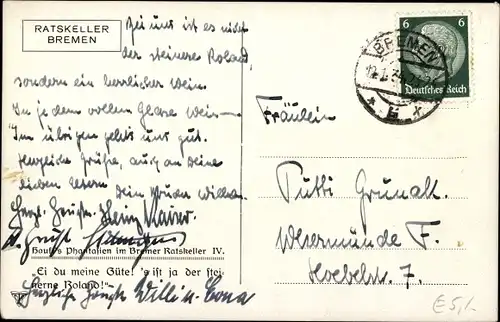 RATSKELLER
BREMEN
Bei uns ist es nicht
der steinere Roland,
sondern ein herrlicher Wein
In jedem vollen Glase Wein —
Im übrigen geht's uns gut.
Herzliche Grüße, auch an Deine
lieben Eltern Dein
Herzl. Heinz
Hauffs Phantasien im Bremer Ratskeller IV.
„Ei du meine Güte! 's ist ja der stei-
nerne Roland!"
Herzliche Willi u.
BREMEN
6 6
Deutsches Reich
Fräulein
Putti Grunalt.
Wesermünde F.
7.
E5,-